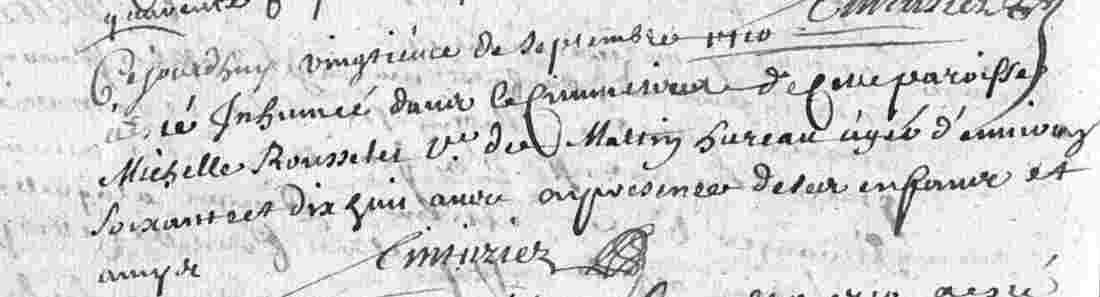 quarente
Cejourdhuy vingtieme de Septembre 1710
a été Inhumeé dans le Cimmetiere de Cette paroisse
Michelle Rousselet Ve de Martin hureau agéé d'environ
Soixante et dix huit ans en presence de ses enfans et
amys